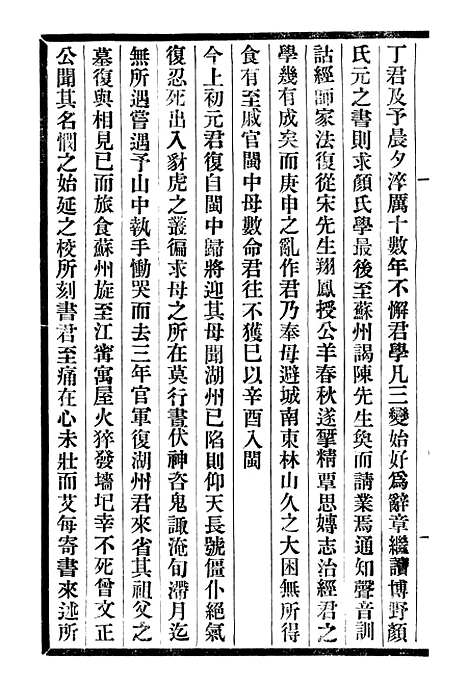 丁君及予晨夕淬厲十數年不懈君學凡三變始好爲辭章繼讀博野顏
氏元之書則求顏氏學最後至蘇州謁陳先生奐而請業焉通知聲音訓
詁經師家法復從宋先生翔鳳授公羊春秋遂揅精覃思媷志治經君之
學幾有成矣而庚申之亂作君乃奉母避城南東林山久之大困無所得
食有至戚官閩中母數命君往不獲已以辛酉入閩
今上初元君復自閩中歸將迎其母聞湖州已陷則仰天長號僵仆絕氣
復忍死出入豺虎之叢徧求母之所在莫行書伏神咨鬼諏淹旬滯月迄
無所遇嘗遇予山中執手慟哭而去三年官軍復湖州君來省其祖父之
墓復與相見已而旅食蘇州旋至江甯寓屋火猝發墻圮幸不死曾文正
公聞其名憫之始延之校所刻書君至痛在心未壯而艾每寄書來述所